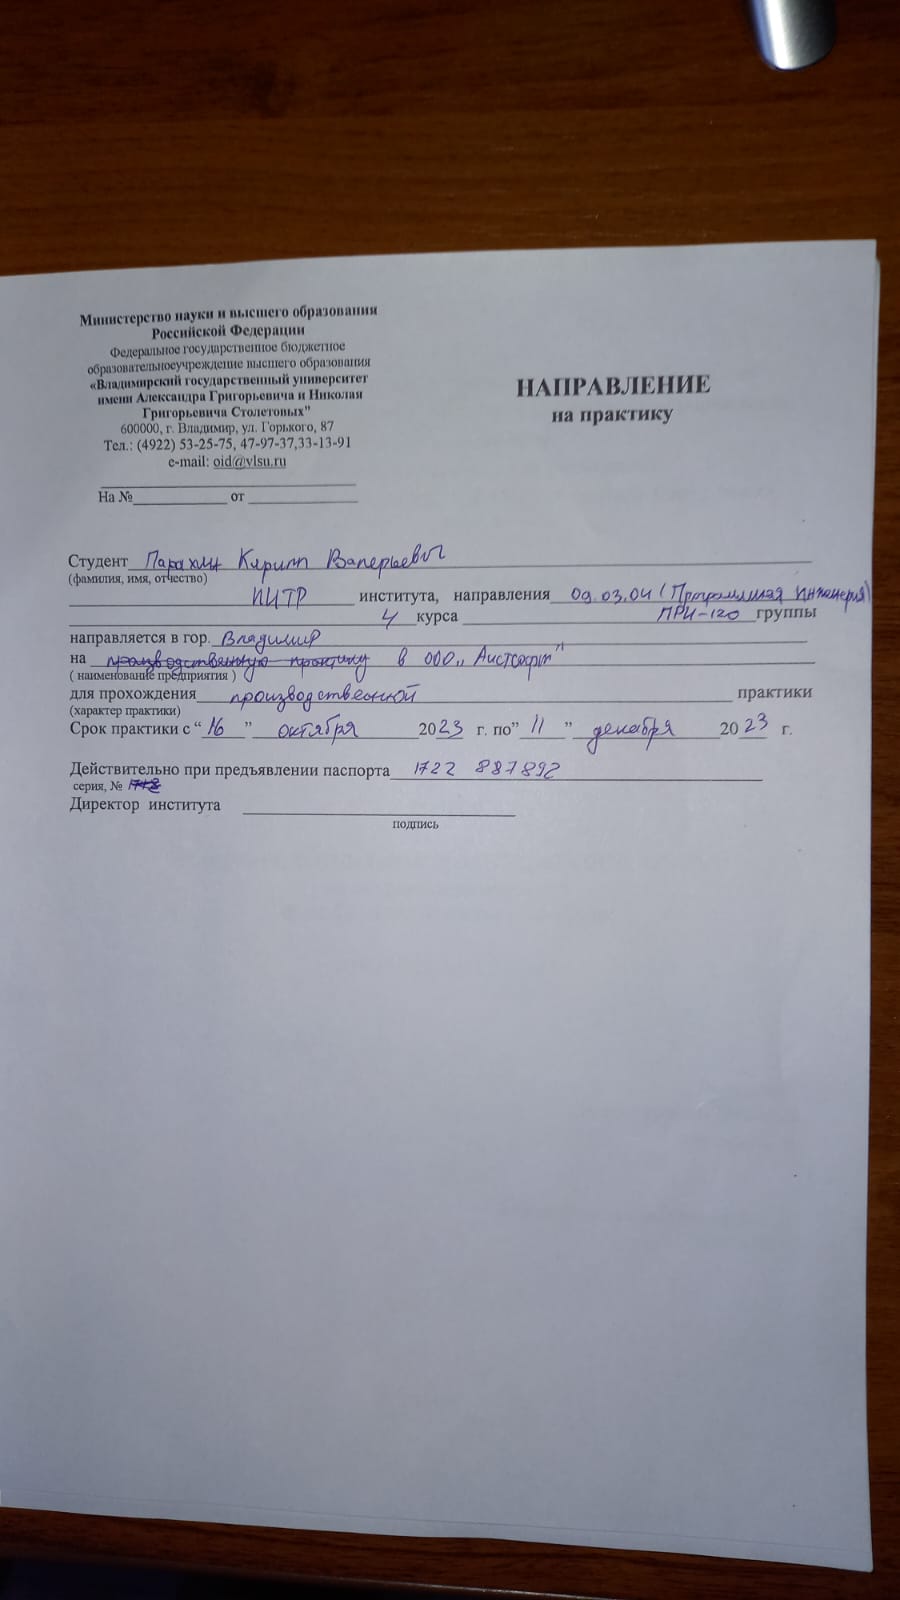 Министерство науки и высшего образования
Российской Федерации
Федеральное государственное бюджетное
образовательноеучреждение высшего образования
«Владимирский государственный университет
имени Александра Григорьевича и Николая
Григорьевича Столетовых"
600000, г. Владимир, ул. Горького, 87
Тел.: (4922) 53-25-75, 47-97-37,33-13-91
e-mail: oid@vlsu.ru
На №____________ от ______________
НАПРАВЛЕНИЕ
на практику
Студент Парахин Кирилл Валерьевич
(фамилия, имя, отчество)
ИИТР института, направления 09.03.04 (Программная инженерия)
4 курса ПРИ-120 группы
направляется в гор. Владимир
на производственную практику в ООО „Аистсофт"
( наименование предприятия )
для прохождения производственной практики
(характер практики)
Срок практики с “ 16 ” октября 2023 г. по” 11 ” декабря 20 23 г.
Действительно при предъявлении паспорта 1722 887892
серия, №
Директор института
подпись